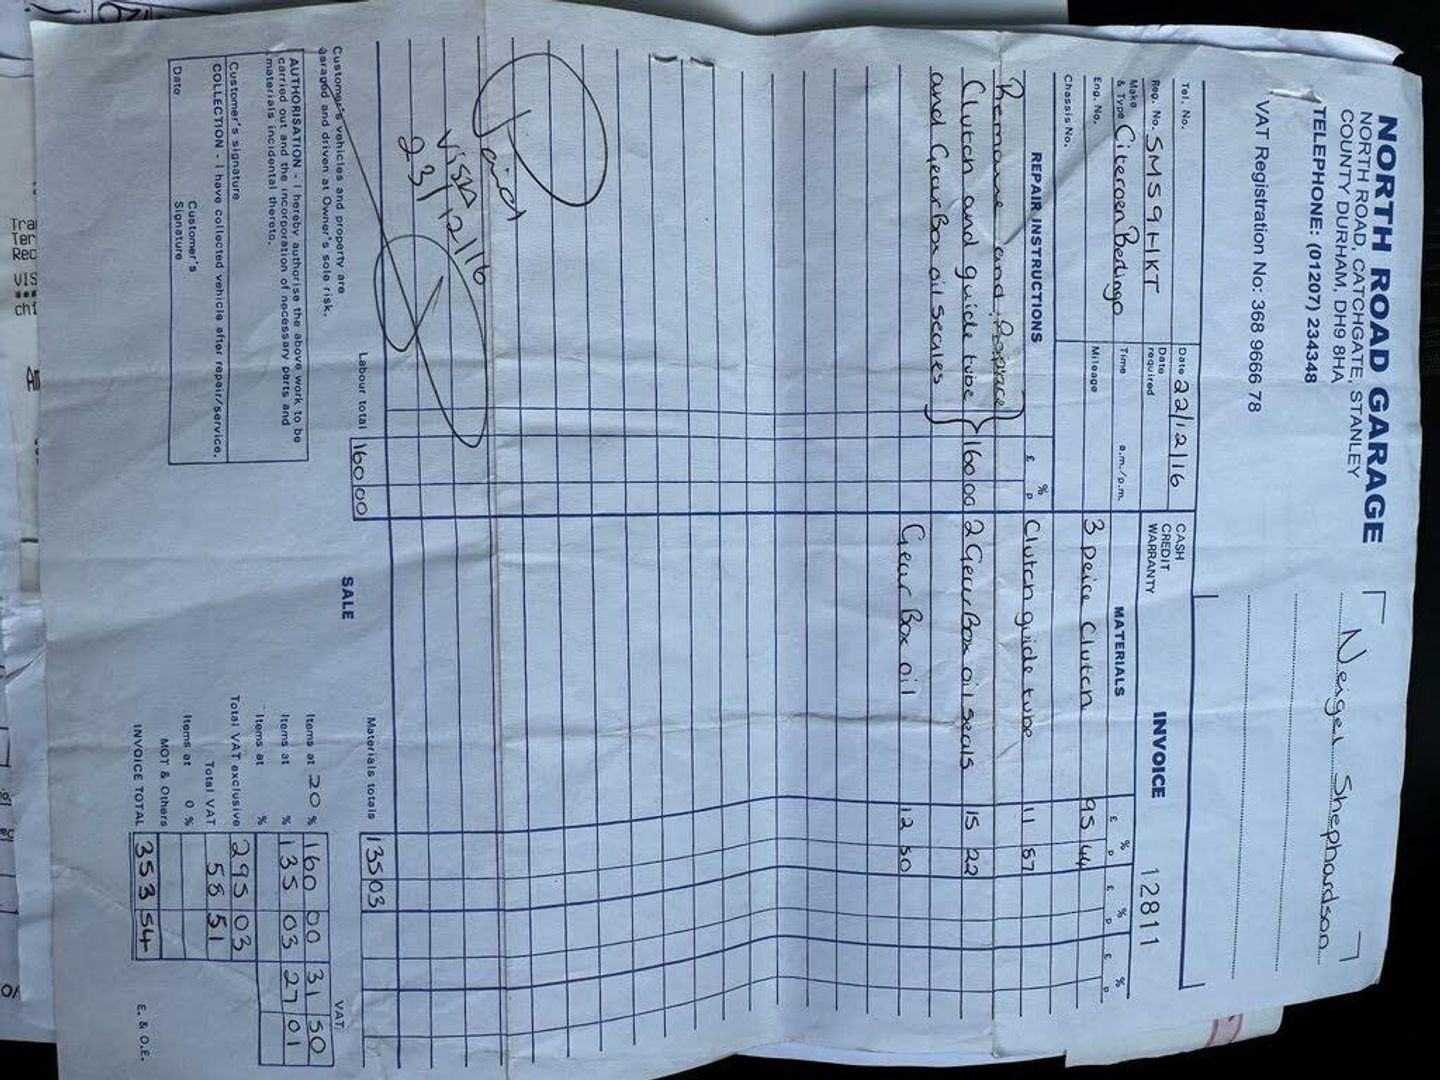 NORTH ROAD GARAGE
NORTH ROAD, CATCHGATE, STANLEY
COUNTY DURHAM, DH9 8HA
TELEPHONE: (01207) 234348
VAT Registration No: 368 9666 78
Neigel Shephardson
INVOICE 12811
Tel. No.
Date 22/12/16
CASH
CREDIT
WARRANTY
Reg. No. SM59HKT
Date required
Make & Type Citeroen Berlingo
Time a.m./p.m.
Eng. No.
Mileage
Chassis No.
REPAIR INSTRUCTIONS £ % p
MATERIALS £ % p £ % p £ % p
Remouve and Reprace
Clutch and guide tube 160 00
and Gear Box oil seales
3 peice Clutch 95 44
Clutch guide tube 11 87
2 Gear Box oil seals 15 22
Gear Box oil 12 50
Paid
VISA
23/12/16
Labour total 160 00
Materials totals 135 03
SALE
VAT
Items at 20 % 160 00 31 50
Items at % 135 03 27 01
Items at %
Total VAT exclusive 295 03
Total VAT 58 51
Items at 0 %
MOT & Others
INVOICE TOTAL 353 54
E. & O.E.
Customer's vehicles and property are
garaged and driven at Owner's sole risk.
AUTHORISATION - I hereby authorise the above work to be
carried out and the incorporation of necessary parts and
materials incidental thereto.
Customer's signature
COLLECTION - I have collected vehicle after repair/service.
Date
Customer's Signature